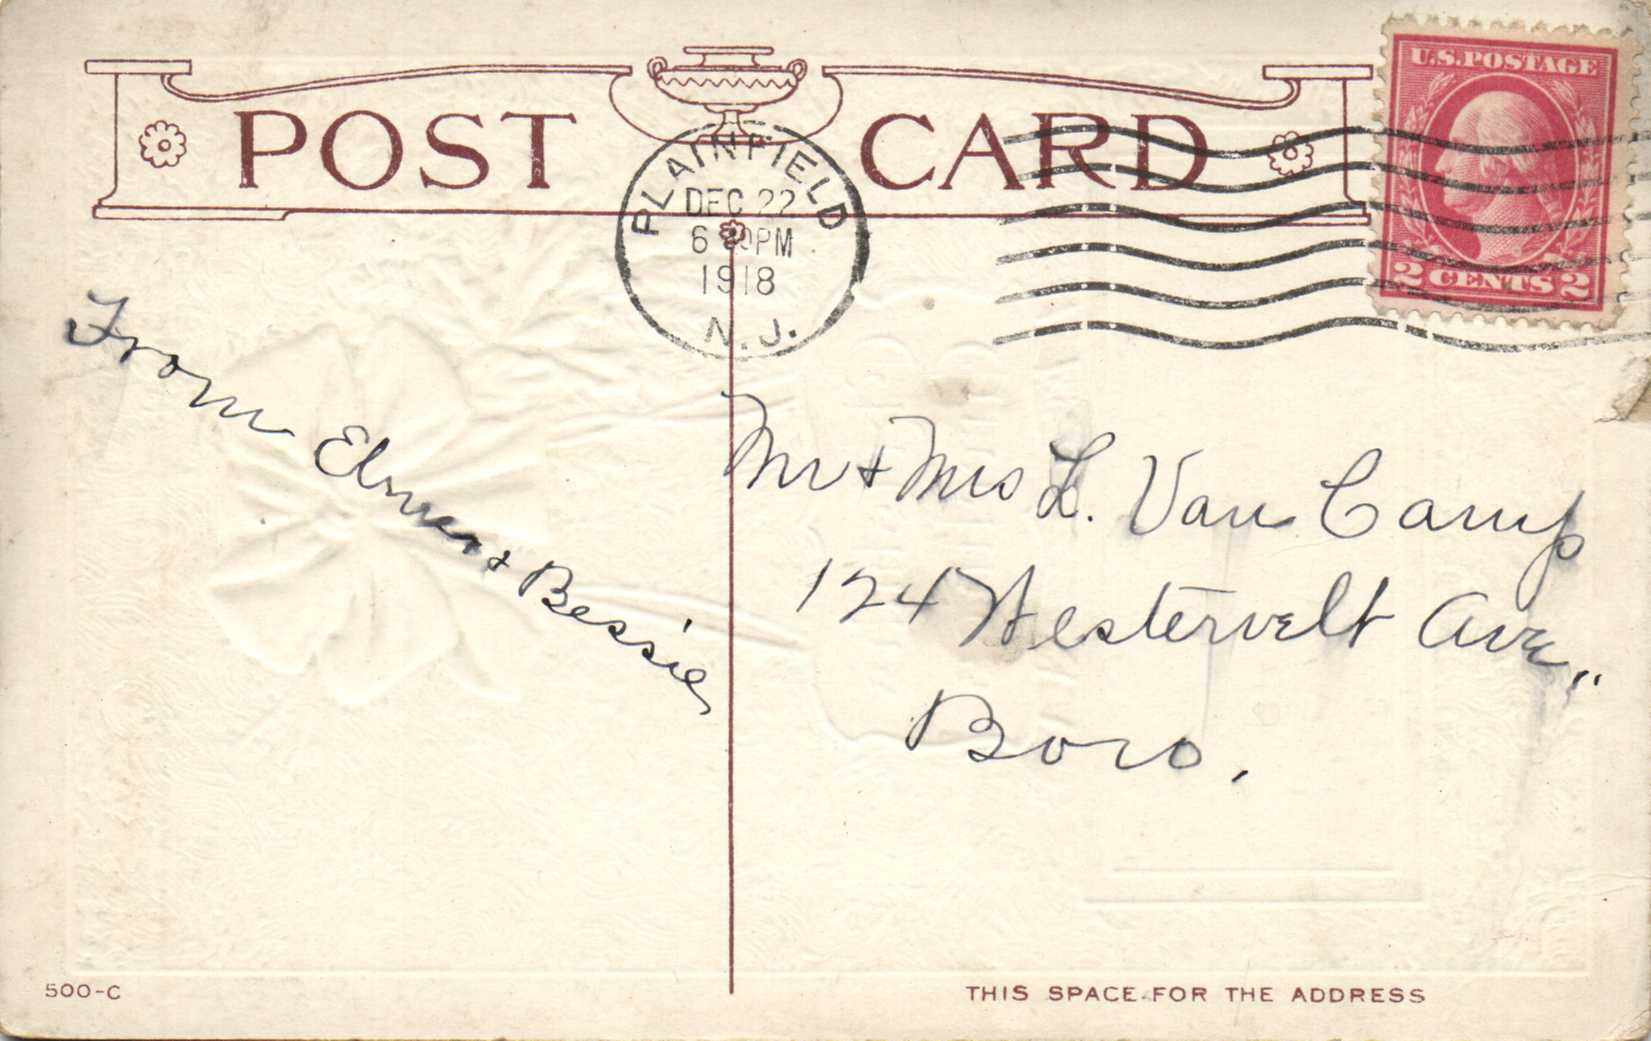 POST CARD
U.S. POSTAGE
2 CENTS 2
PLAINFIELD
DEC 22
6 PM
1918
N.J.
From Elmer & Bessie
Mr & Mrs L. Van Camp
124 Westervelt Ave.,
Boro.
500-C
THIS SPACE FOR THE ADDRESS